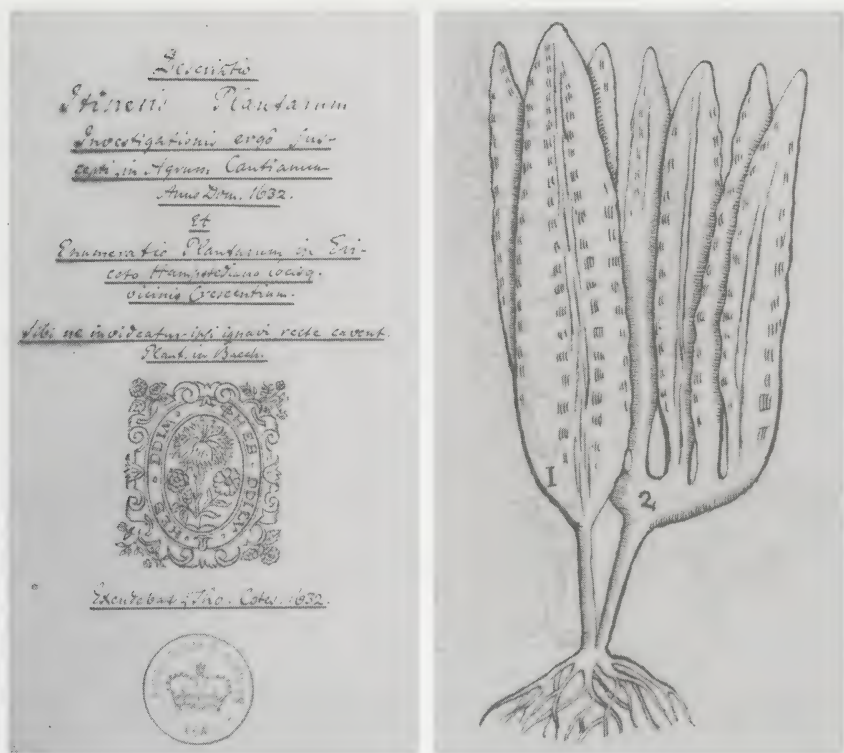 Descriptio
Itineris Plantarum
Investigationis ergô sus-
cepti, in Agrum Cantianum
Anno Dom. 1632.
Et
Enumeratio Plantarum in Eri-
ceto Hampstediano locisq.
vicinis Crescentium.
Sibi ne invideatur ipsi ignavi recte cavent.
Plaut. in Bacch.
Excudebat Tho. Cotes. 1632.
1
2